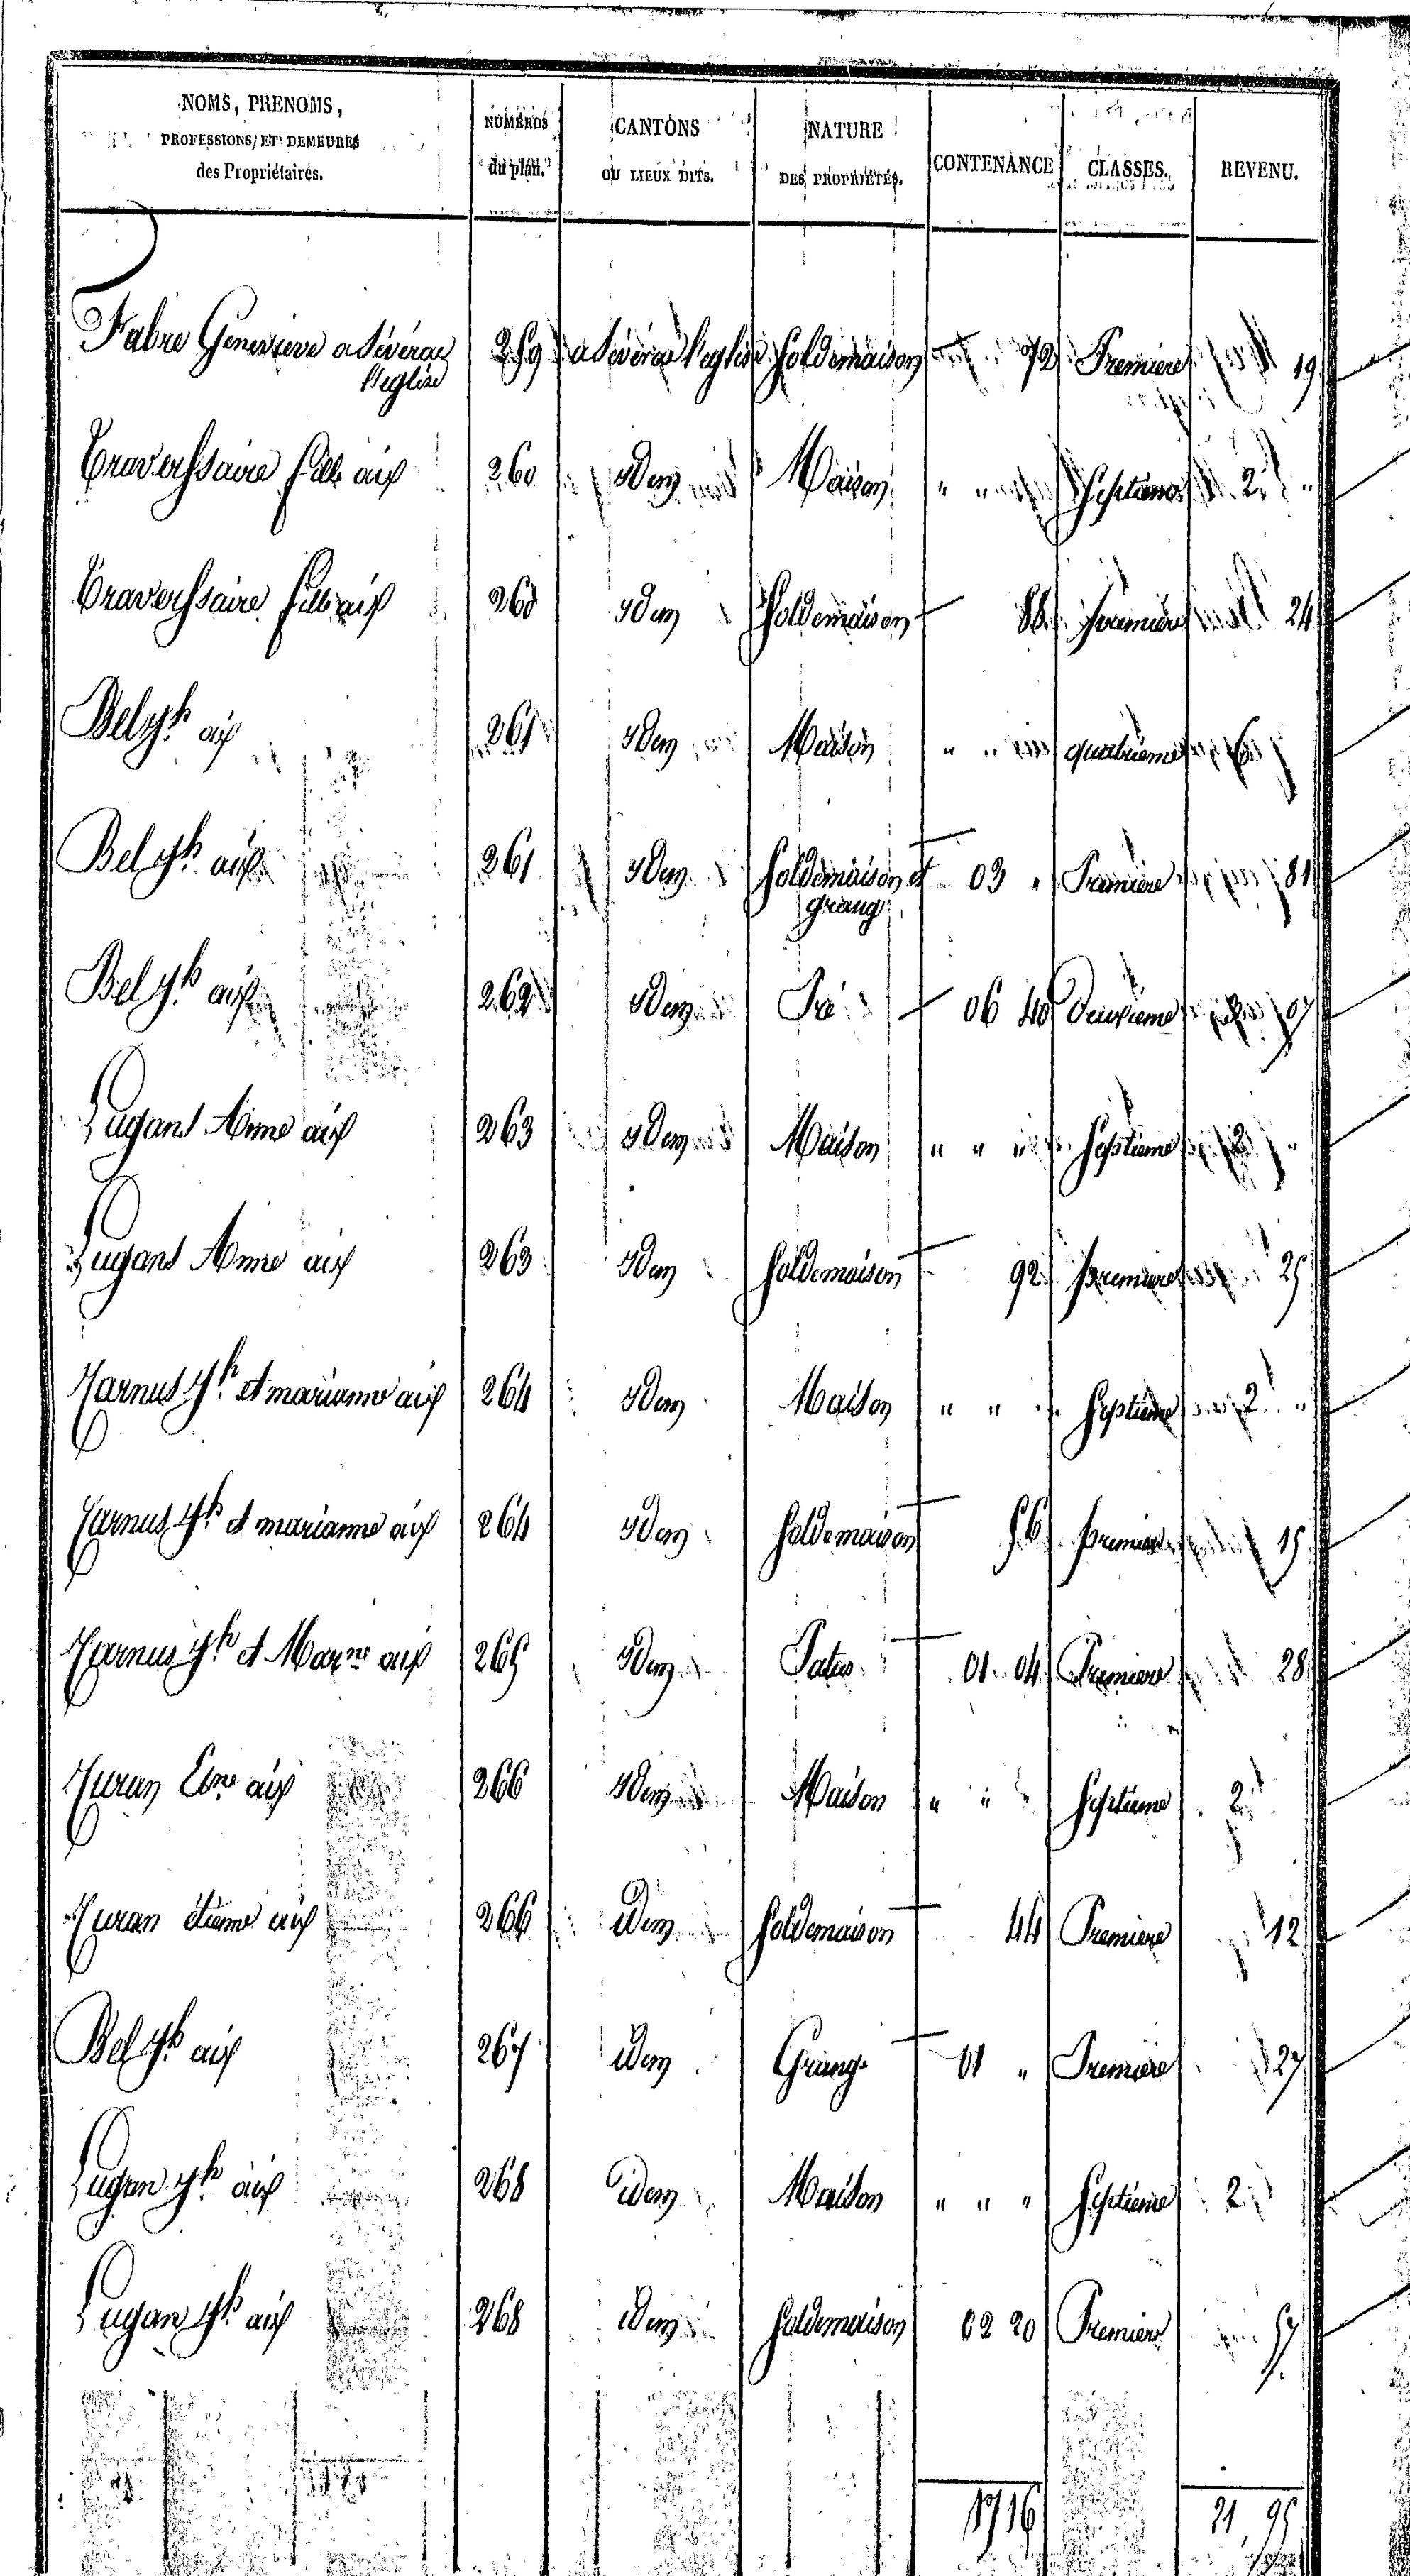 NOMS, PRENOMS, PROFESSIONS, ET DEMEURES des Propriétaires. NUMÉROS du plan. CANTONS OU LIEUX DITS. NATURE DES PROPRIÉTÉS. CONTENANCE CLASSES. REVENU.
Fabre Genevieve a Sévérac l'eglise 259 a Sévérac l'eglise Soldemaison 72 Premiere 19
Traverssaire fille aif 260 idem Maison " " Septieme 2 "
Traverssaire fille aif 260 idem Soldemaison 88 premiere 24
Bel Jh aif 261 idem Maison " " quatrieme 6
Bel Jh aif 261 idem Soldemaison et grange 03 " Premiere 81
Bel Jh aif 262 idem Pré 06 40 Deuxieme 07
Lugans Anne aif 263 idem Maison " " " Septieme 2 "
Lugans Anne aif 263 idem Soldemaison 92 premiere 25
Jh et marianne aif 264 idem Maison " " " Septieme 2 "
Jh et marianne aif 264 idem Soldemaison 56 premiere 15
Jh et Marne aif 265 idem Patus 01 04 Premiere 28
Ene aif 266 idem Maison " " " Septieme 2
etienne aif 266 idem Soldemaison 44 Premiere 12
Bel Jh aif 267 idem Grange 01 " Premiere 27
Lugan Jh aif 268 idem Maison " " " Septieme 2
Lugan Jh aif 268 idem Soldemaison 02 20 Premiere 57
17 16 21, 95